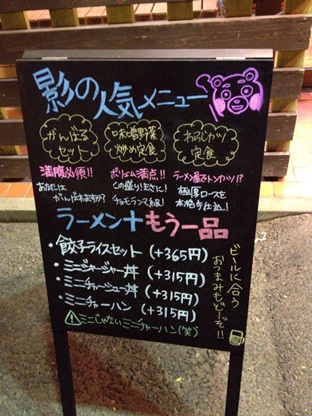 影の人気メニュー
がんばる
セット
味噌野菜
炒め定食
わらじかつ
定食
満腹必須!!
ボリューム満点!!
ラーメン屋でトンカツ!?
あなたは
がんばれますか?
この盛りまさに!
チョモランマ級!
極厚ロースを
本格手仕込!
ラーメン+もう一品
・餃子ライスセット(+365円)
・ミニジャージャー丼(+315円)
・ミニチャーシュー丼(+315円)
・ミニチャーハン(+315円)
ミニじゃないミニチャーハン(笑)
ビールに合う
おつまみもどーぞ!!